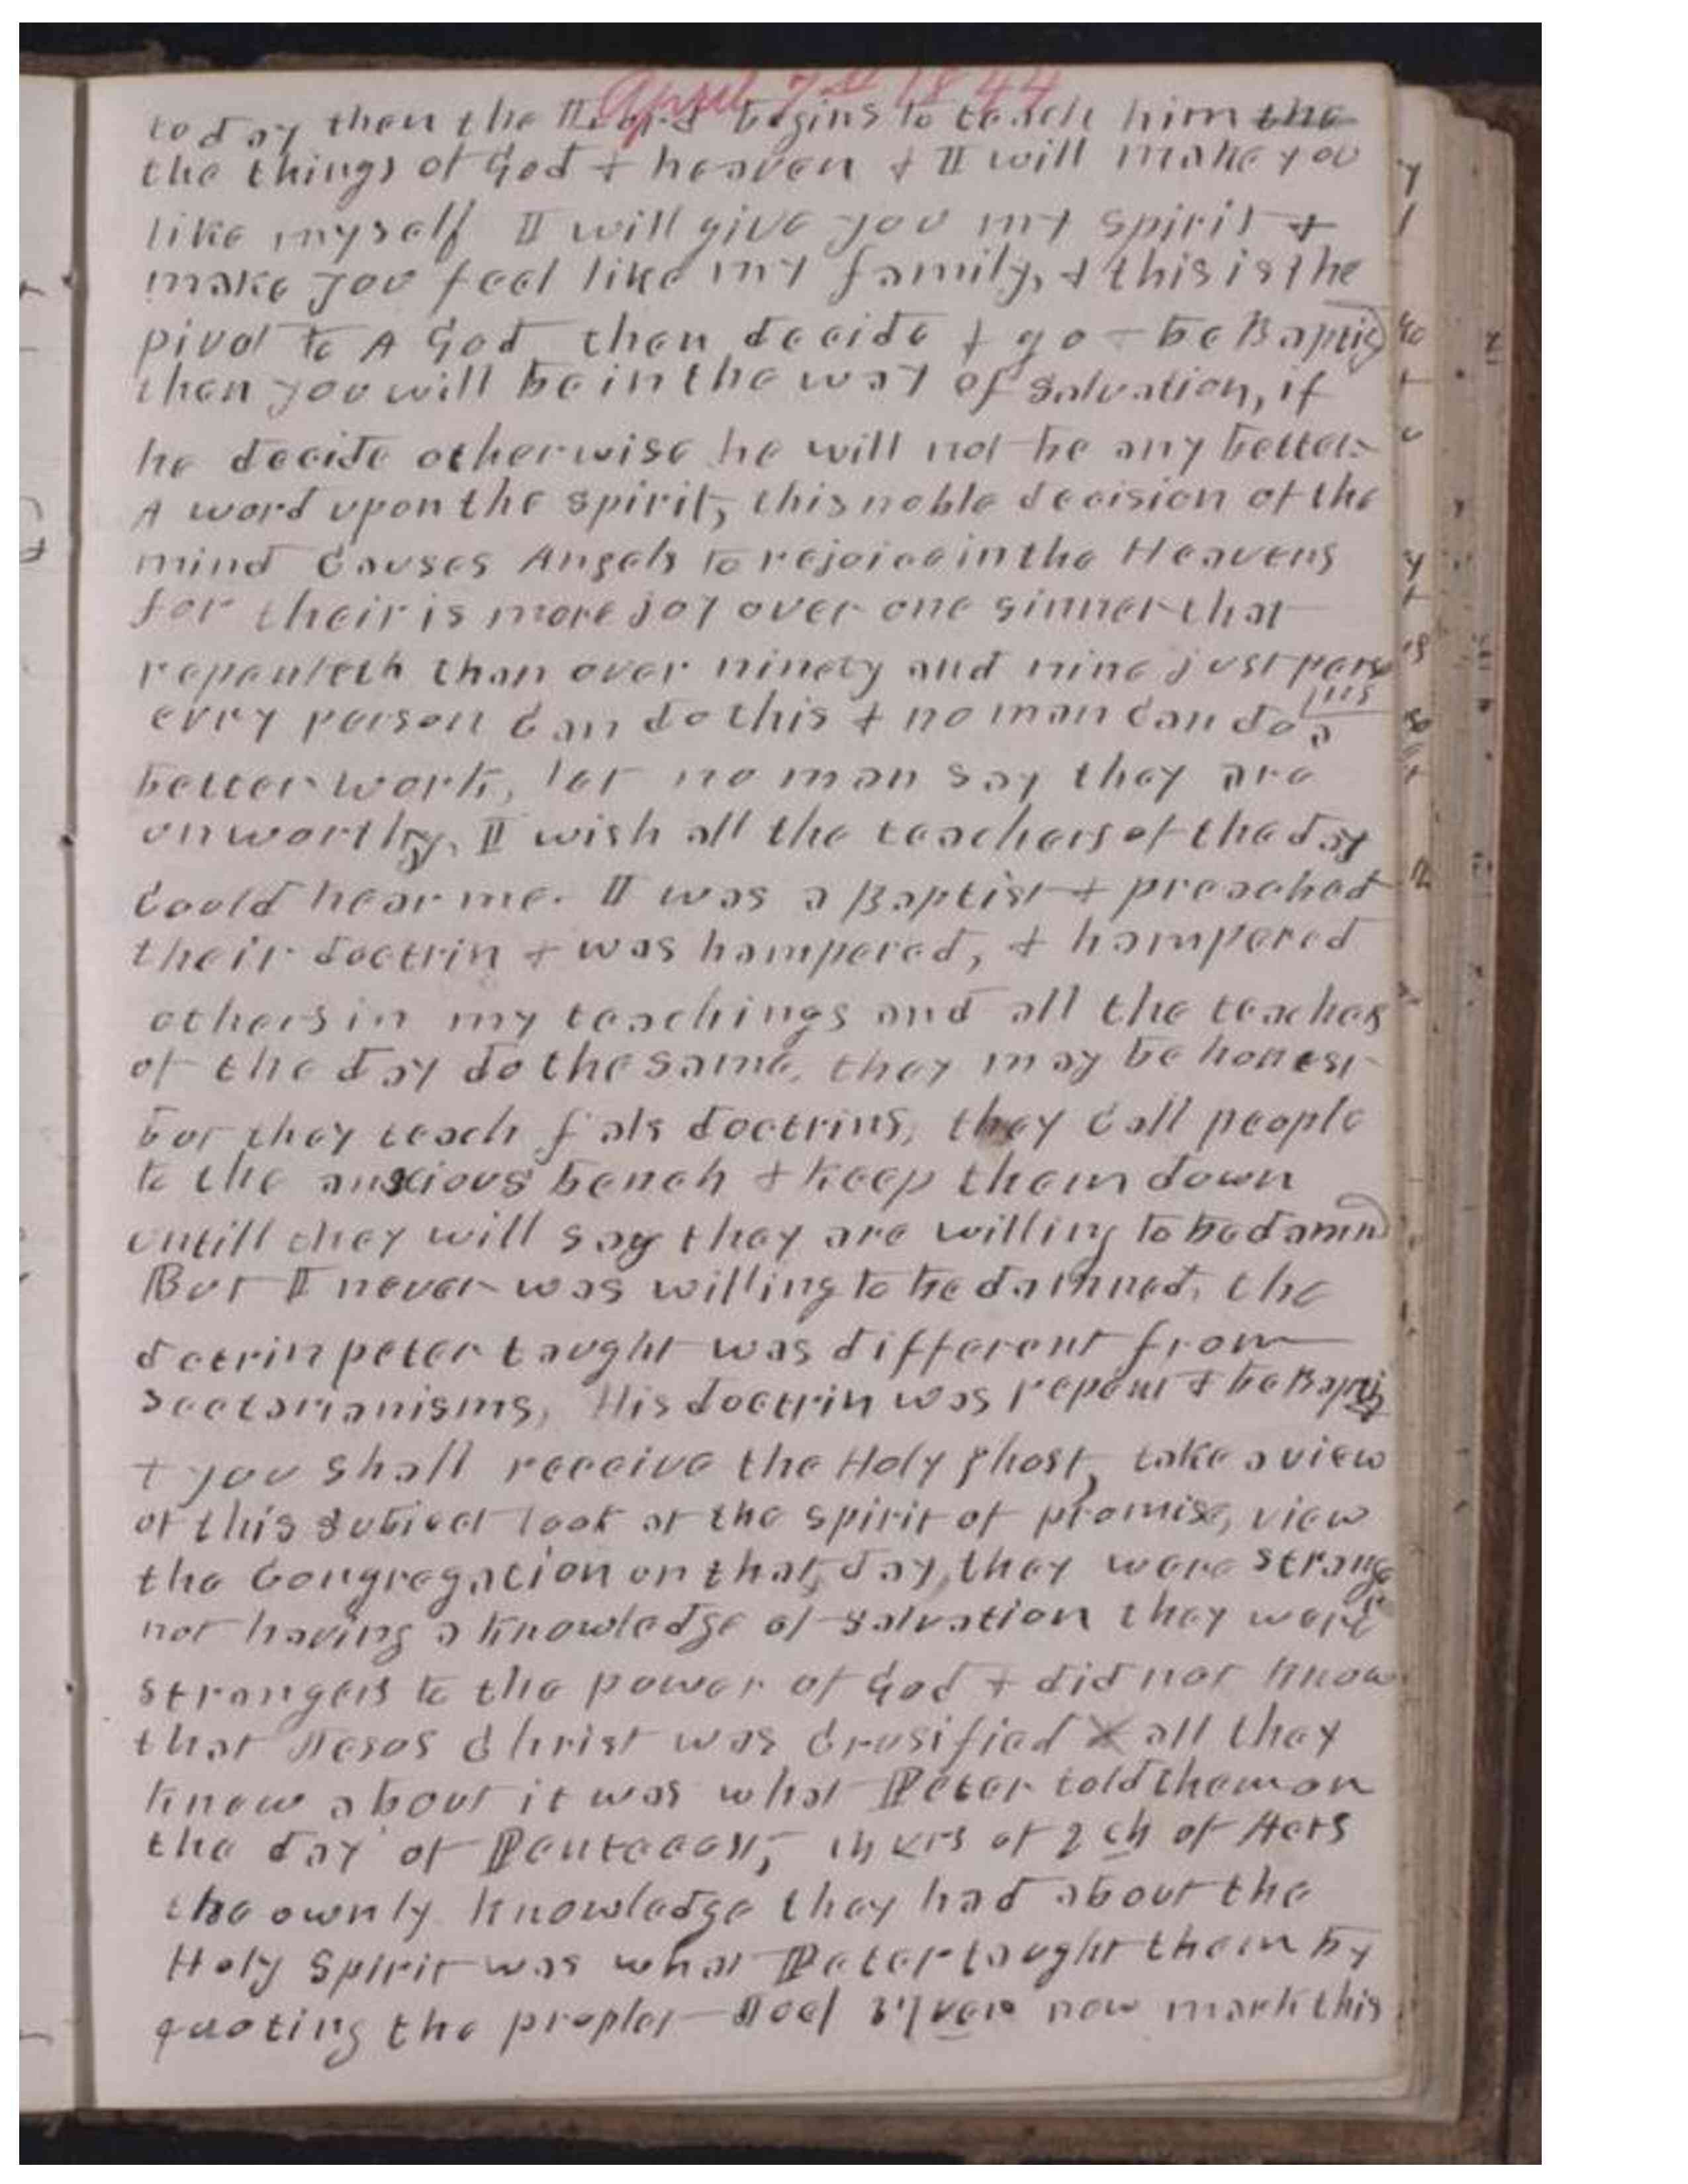 April 7th 1844
today then the Lord begins to teach him the
the things of God + heaven + I will make you
like myself I will give you my spirit +
make you feel like my family, + this is the
pivot to A God then decide + go - be Baptiz
then you will be in the way of salvation, if
he decide otherwise he will not be any better
A word upon the spirit, this noble decision of the
mind causes Angels to rejoice in the Heavens
for their is more joy over one sinner that
repenteth than over ninety and nine just pers
evry person can do this + no man can do a
better work, let no man say they are
unworthy, I wish all the teachers of the day
could hear me. I was a Baptist + preached
their doctrin + was hampered, + hampered
others in my teachings and all the teachers
of the day do the same, they may be honest
but they teach fals doctrins, they call people
to the anxious bench + keep them down
untill they will say they are willing to be damn
But I never was willing to be damned, the
doctrin peter taught was different from
sectarianisms, His doctrin was repent + be Baptiz
+ you shall receive the Holy ghost, take a view
of this subject look at the spirit of promise, view
the Congregation on that day, they were strange
not having a knowledge of salvation they were
strangers to the power of God + did not know
that Jesus Christ was crusified all they
knew about it was what Peter told them on
the day of Pentecost, of 2 ch of Acts
the ownly knowledge they had about the
Holy Spirit was what Peter taught them by
quoting the prophet Joel now mark this